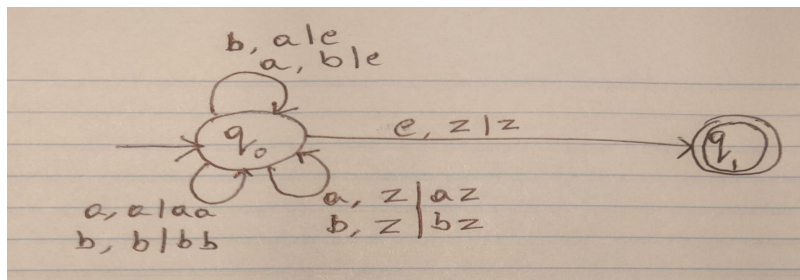 b, a|e
a, b|e
q₀
e, z|z
q₁
a, a|aa
b, b|bb
a, z|az
b, z|bz